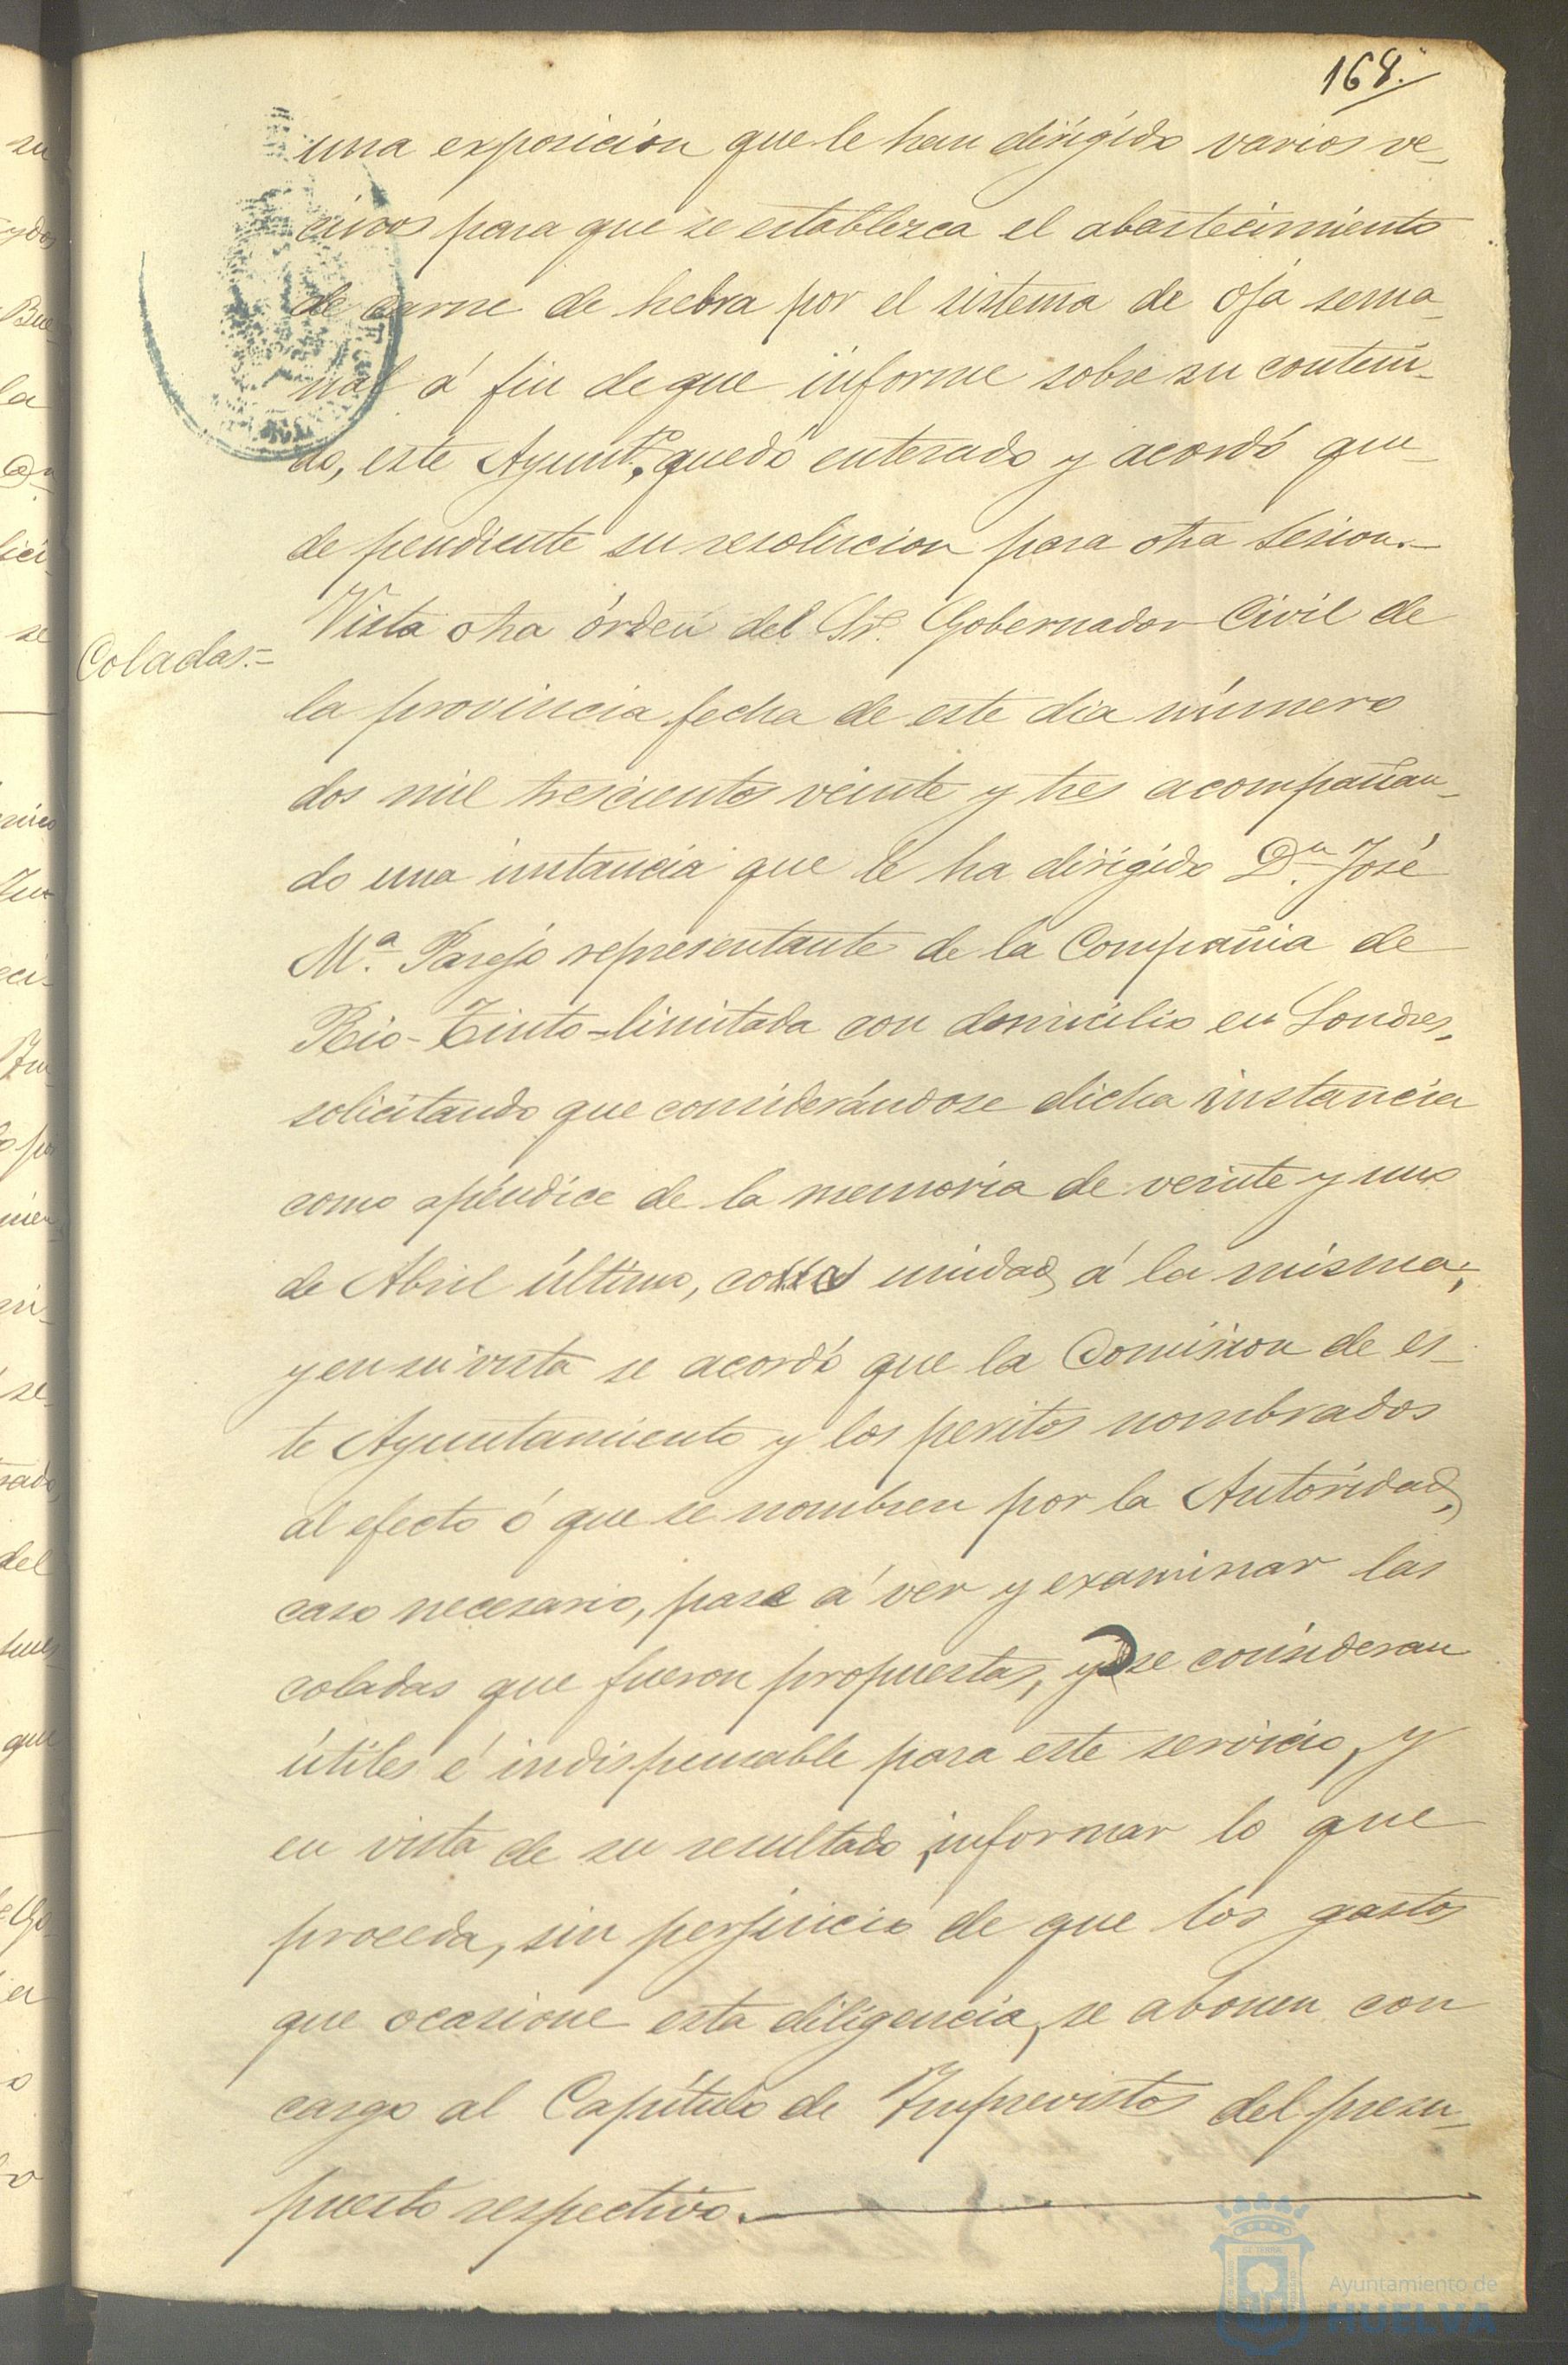 168.
una exposicion que le han dirigido varios ve-
cinos para que se establezca el abastecimiento
de carne de hebra por el sistema de oja sema-
nal á fin de que informe sobre su conteni-
do, este Ayuntº. quedó enterado y acordó que-
de pendiente su resolucion para otra sesion.-
Coladas.=
Vista otra órden del Sr. Gobernador Civil de
la provincia fecha de este dia número
dos mil trescientos veinte y tres acompañan-
do una instancia que le ha dirigido Dn. José
Mª. Parejo representante de la Compañia de
Rio-Tinto-limitada con domicilio en Londres,
solicitando que considerándose dicha instancia
como apéndice de la memoria de veinte y uno
de Abril último, unidad á la misma;
y en su vista se acordó que la Comision de es-
te Ayuntamiento y los peritos nombrados
al efecto ó que se nombren por la Autoridad,
caso necesario, pase á ver y examinar las
coladas que fueron propuestas, y se consideran
útiles é indispensable para este servicio, y
en vista de su resultado, informar lo que
proceda, sin perjuicio de que los gastos
que ocasione esta diligencia, se abonen con
cargo al Capítulo de Imprevistos del presu-
puesto respectivo.
Ayuntamiento de
HUELVA